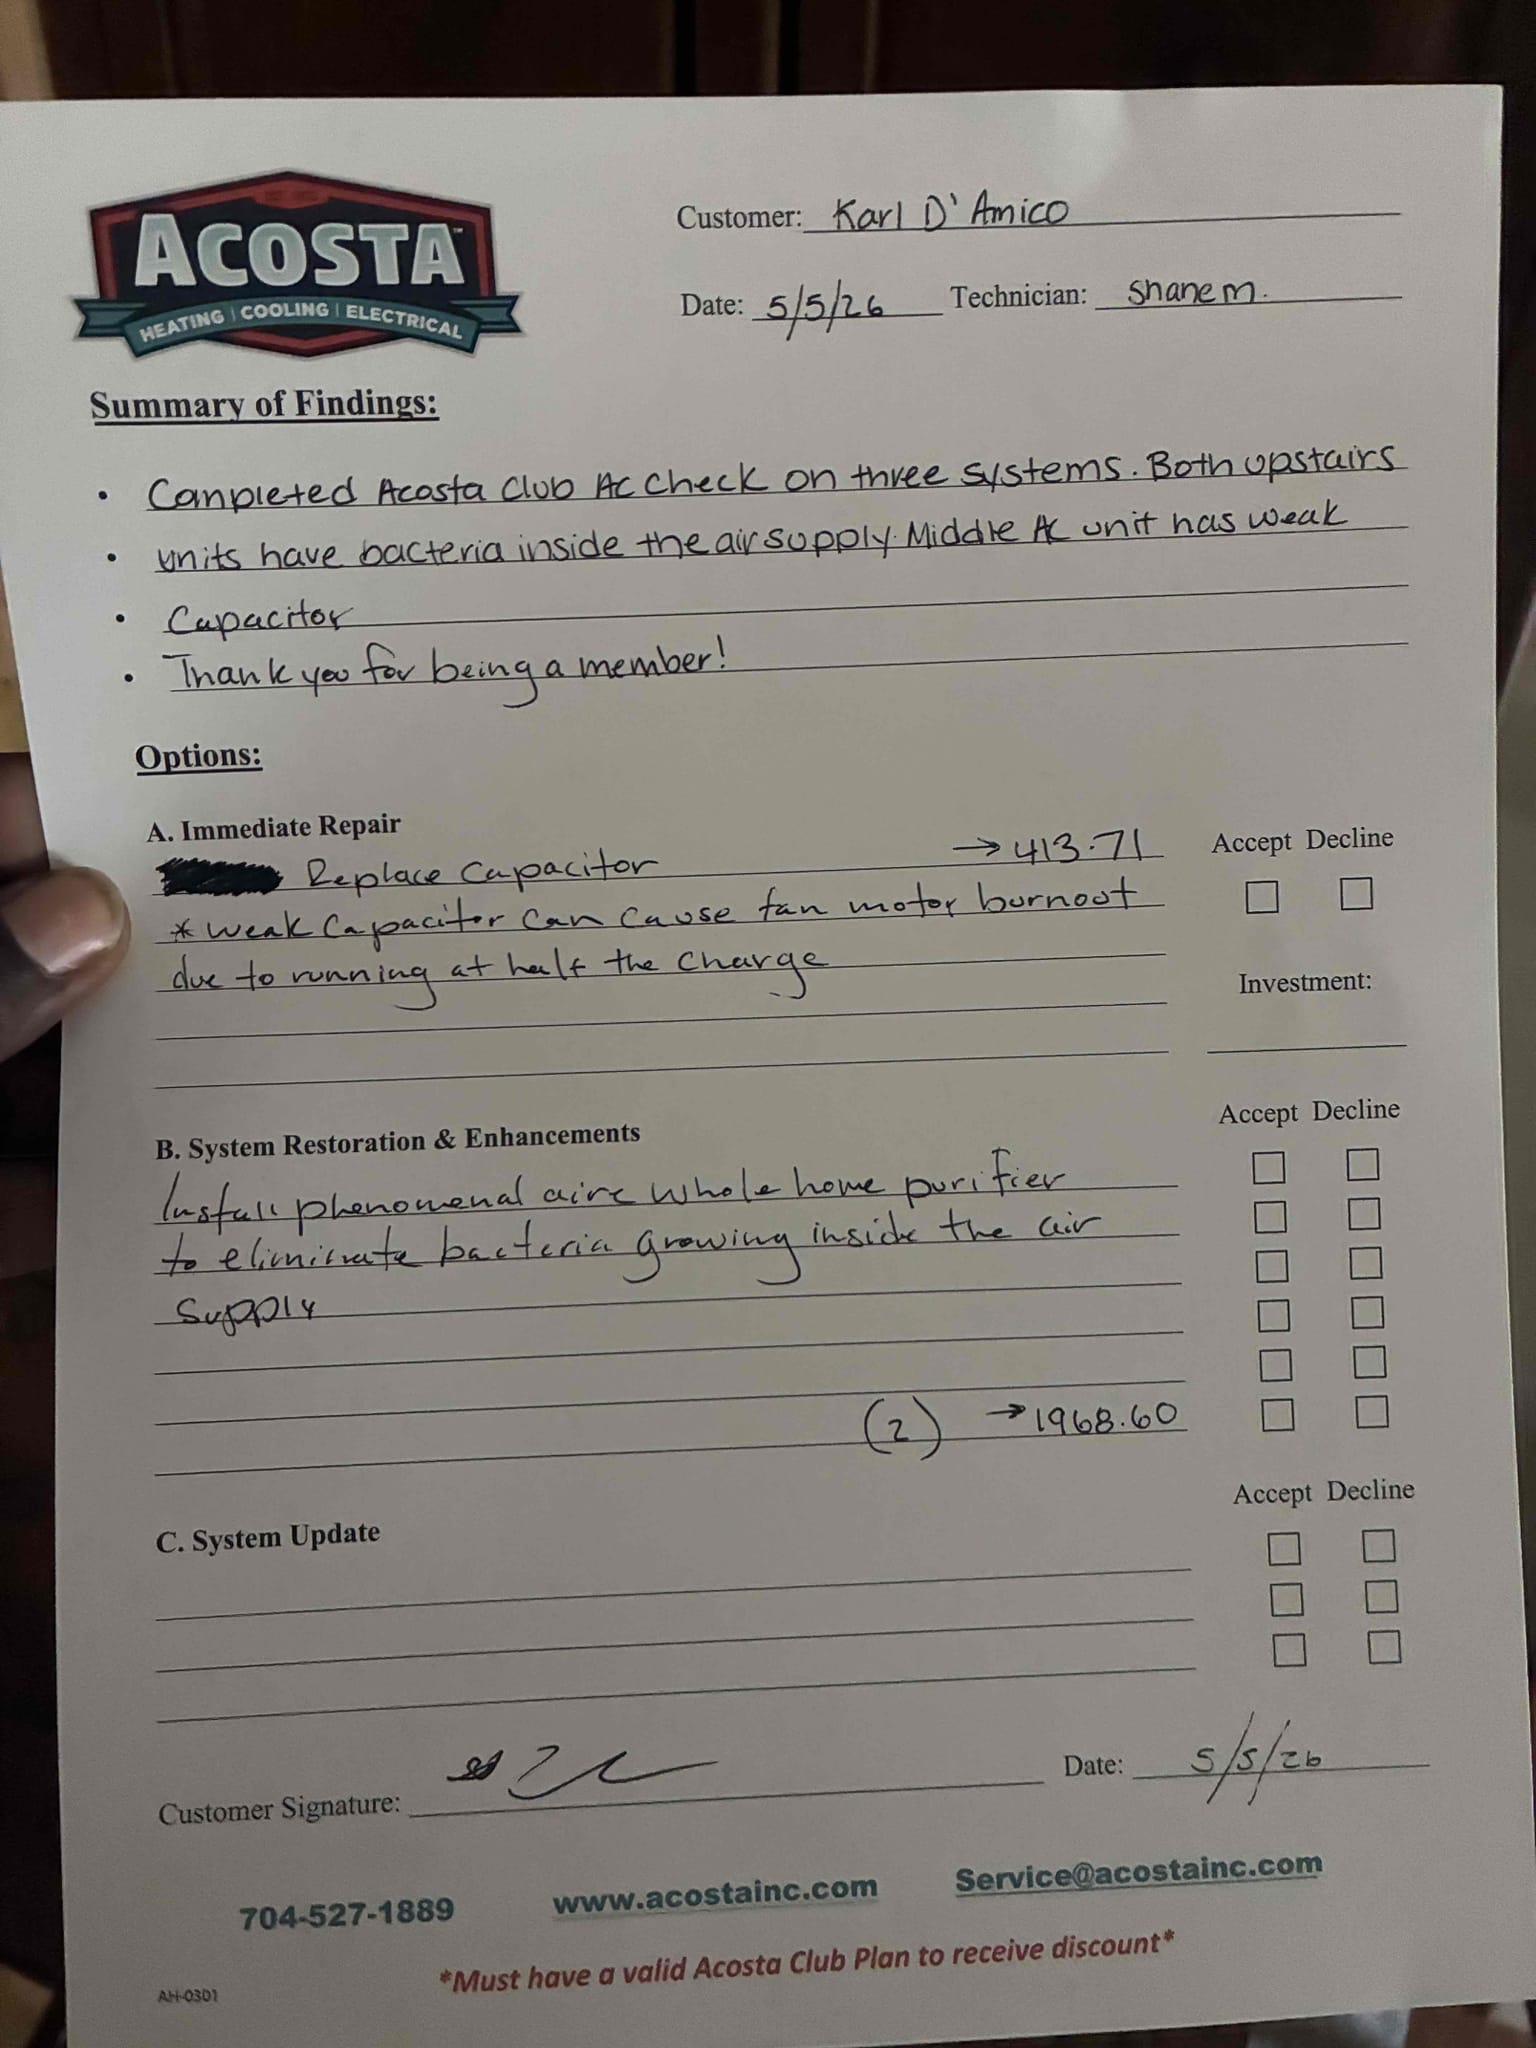 ACOSTA™
HEATING | COOLING | ELECTRICAL
Customer: Karl D'Amico
Date: 5/5/26 Technician: Shane m.
Summary of Findings:
• Completed Acosta Club AC Check on three systems. Both upstairs
• units have bacteria inside the air supply. Middle AC unit has weak
• Capacitor
• Thank you for being a member!
Options:
A. Immediate Repair
Accept Decline
Replace Capacitor → 413.71
* Weak Capacitor can cause fan motor burnout
due to running at half the charge
Investment:
B. System Restoration & Enhancements
Accept Decline
Install phenomenal aire whole home purifier
to eliminate bacteria growing inside the air
supply
(2) → 1968.60
C. System Update
Accept Decline
Customer Signature:
Date: 5/5/26
704-527-1889 www.acostainc.com Service@acostainc.com
*Must have a valid Acosta Club Plan to receive discount*
AH-0301